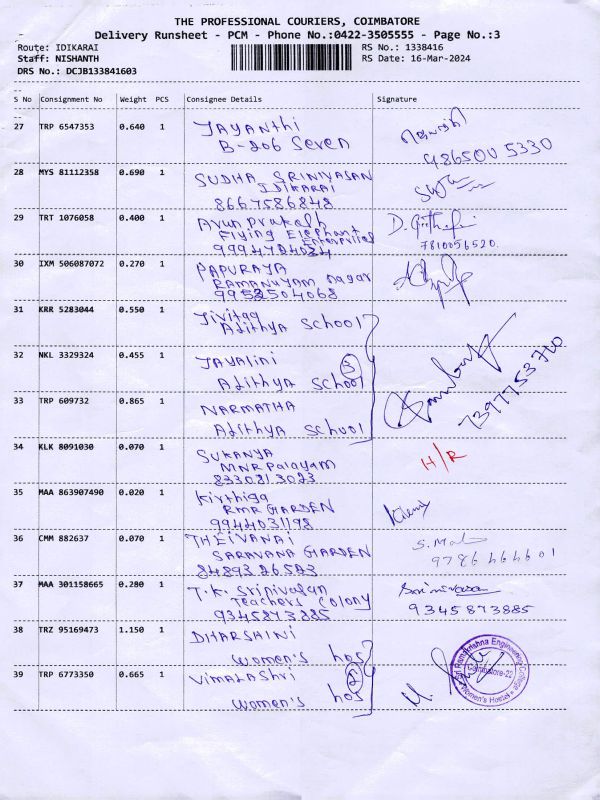 THE PROFESSIONAL COURIERS, COIMBATORE
Delivery Runsheet - PCM - Phone No.:0422-3505555 - Page No.:3
Route: IDIKARAI RS No.: 1338416
Staff: NISHANTH RS Date: 16-Mar-2024
DRS No.: DCJB133841603
S No Consignment No Weight PCS Consignee Details Signature
27 TRP 6547353 0.640 1 JAYANTHI
B-206 Seven
5330
28 MYS 81112358 0.690 1 SUDHA SRINIVASAN
IDIKARAI
8667586848
29 TRT 1076058 0.400 1 Arun prakash
Flying Elephant
Enterprises
7810056520.
30 IXM 506087072 0.270 1 PAPURAYA
RAMANUYAM nagar
9952504068
31 KRR 5283044 0.550 1 Jivitaa
Adithya School
32 NKL 3329324 0.455 1 JAYALini
Adithya School 3
7397753710
33 TRP 609732 0.865 1 NARMATHA
Adithya School
34 KLK 8091030 0.070 1 SUKANYA
MNR Palayam
8330813023
H/R
35 MAA 863907490 0.020 1 Kirthiga
RMR GARDEN
9944031198
36 CMM 882637 0.070 1 THEIVANAI
SARAVANA GARDEN
8489326523
9786464601
37 MAA 301158665 0.280 1 T.K. Srinivasan
Teachers Colony
9345873885
Srinivasan
9345873885
38 TRZ 95169473 1.150 1 DHARSHINI
Women's hos
39 TRP 6773350 0.665 1 VIMALAShri
Women's hos 2
Sri Ramakrishna Engineering College
Coimbatore-22
Women's Hostel